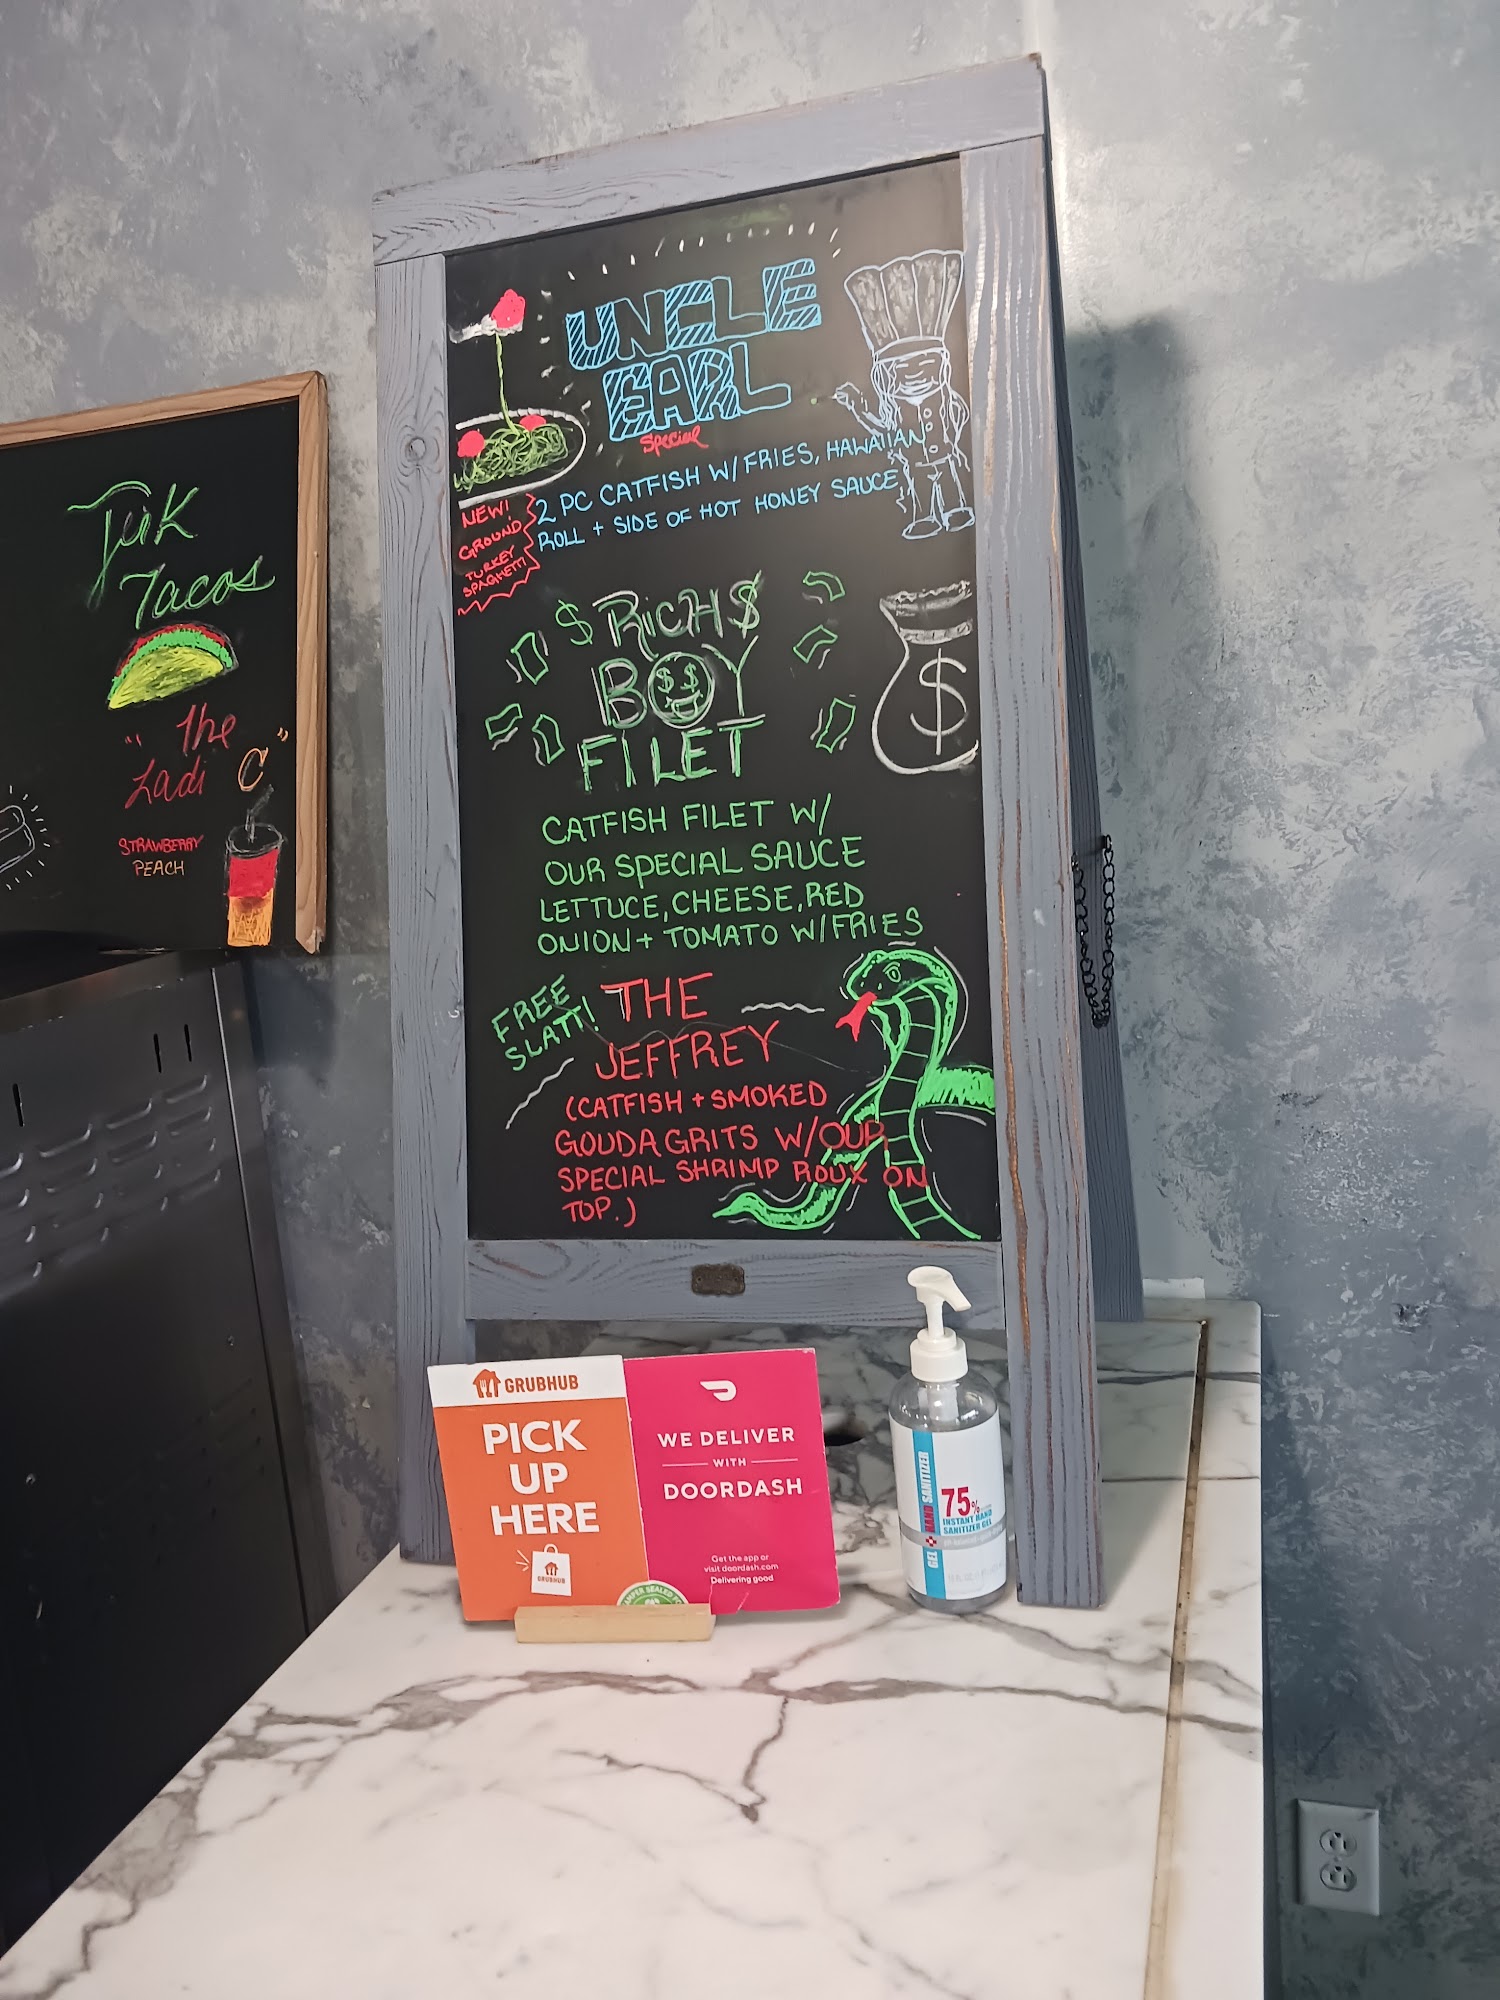 Jerk
Tacos
"The
Ladi C"
STRAWBERRY
PEACH
UNCLE
EARL
Special
2 PC CATFISH W/ FRIES, HAWAIIAN
ROLL + SIDE OF HOT HONEY SAUCE
NEW!
GROUND
TURKEY
SPAGHETTI
$ RICH $
BOY
FILET
$
CATFISH FILET W/
OUR SPECIAL SAUCE
LETTUCE, CHEESE, RED
ONION + TOMATO W/FRIES
FREE
SLATT!
THE
JEFFREY
(CATFISH + SMOKED
GOUDA GRITS W/OUR
SPECIAL SHRIMP ROUX ON
TOP.)
GRUBHUB
PICK
UP
HERE
GRUBHUB
WE DELIVER
WITH
DOORDASH
Get the app or
visit doordash.com
Delivering good
GEL + HAND SANITIZER
75%
INSTANT HAND
SANITIZER GEL